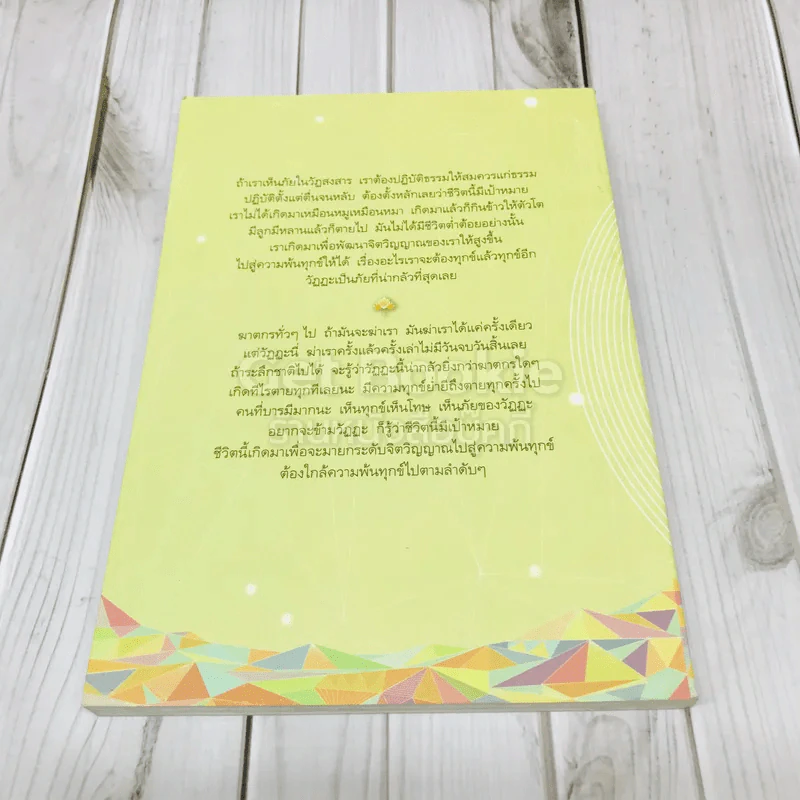 ถ้าเราเห็นภัยในวัฏสงสาร เราต้องปฏิบัติธรรมให้สมควรแก่ธรรม
ปฏิบัติตั้งแต่ตื่นจนหลับ ต้องตั้งหลักเลยว่าชีวิตนี้มีเป้าหมาย
เราไม่ได้เกิดมาเหมือนหมูเหมือนหมา เกิดมาแล้วก็กินข้าวให้ตัวโต
มีลูกมีหลานแล้วก็ตายไป มันไม่ได้มีชีวิตต่ำต้อยอย่างนั้น
เราเกิดมาเพื่อพัฒนาจิตวิญญาณของเราให้สูงขึ้น
ไปสู่ความพ้นทุกข์ให้ได้ เรื่องอะไรเราจะต้องทุกข์แล้วทุกข์อีก
วัฏฏะเป็นภัยที่น่ากลัวที่สุดเลย
ฆาตกรทั่วๆ ไป ถ้ามันจะฆ่าเรา มันฆ่าเราได้แค่ครั้งเดียว
แต่วัฏฏะนี่ ฆ่าเราครั้งแล้วครั้งเล่าไม่มีวันจบวันสิ้นเลย
ถ้าระลึกชาติไปได้ จะรู้ว่าวัฏฏะนี้น่ากลัวยิ่งกว่าฆาตกรใดๆ
เกิดทีไรตายทุกทีเลยนะ มีความทุกข์ย่ำยีถึงตายทุกครั้งไป
คนที่บารมีมากนะ เห็นทุกข์เห็นโทษ เห็นภัยของวัฏฏะ
อยากจะข้ามวัฏฏะ ก็รู้ว่าชีวิตนี้มีเป้าหมาย
ชีวิตนี้เกิดมาเพื่อจะมายกระดับจิตวิญญาณไปสู่ความพ้นทุกข์
ต้องใกล้ความพ้นทุกข์ไปตามลำดับๆ